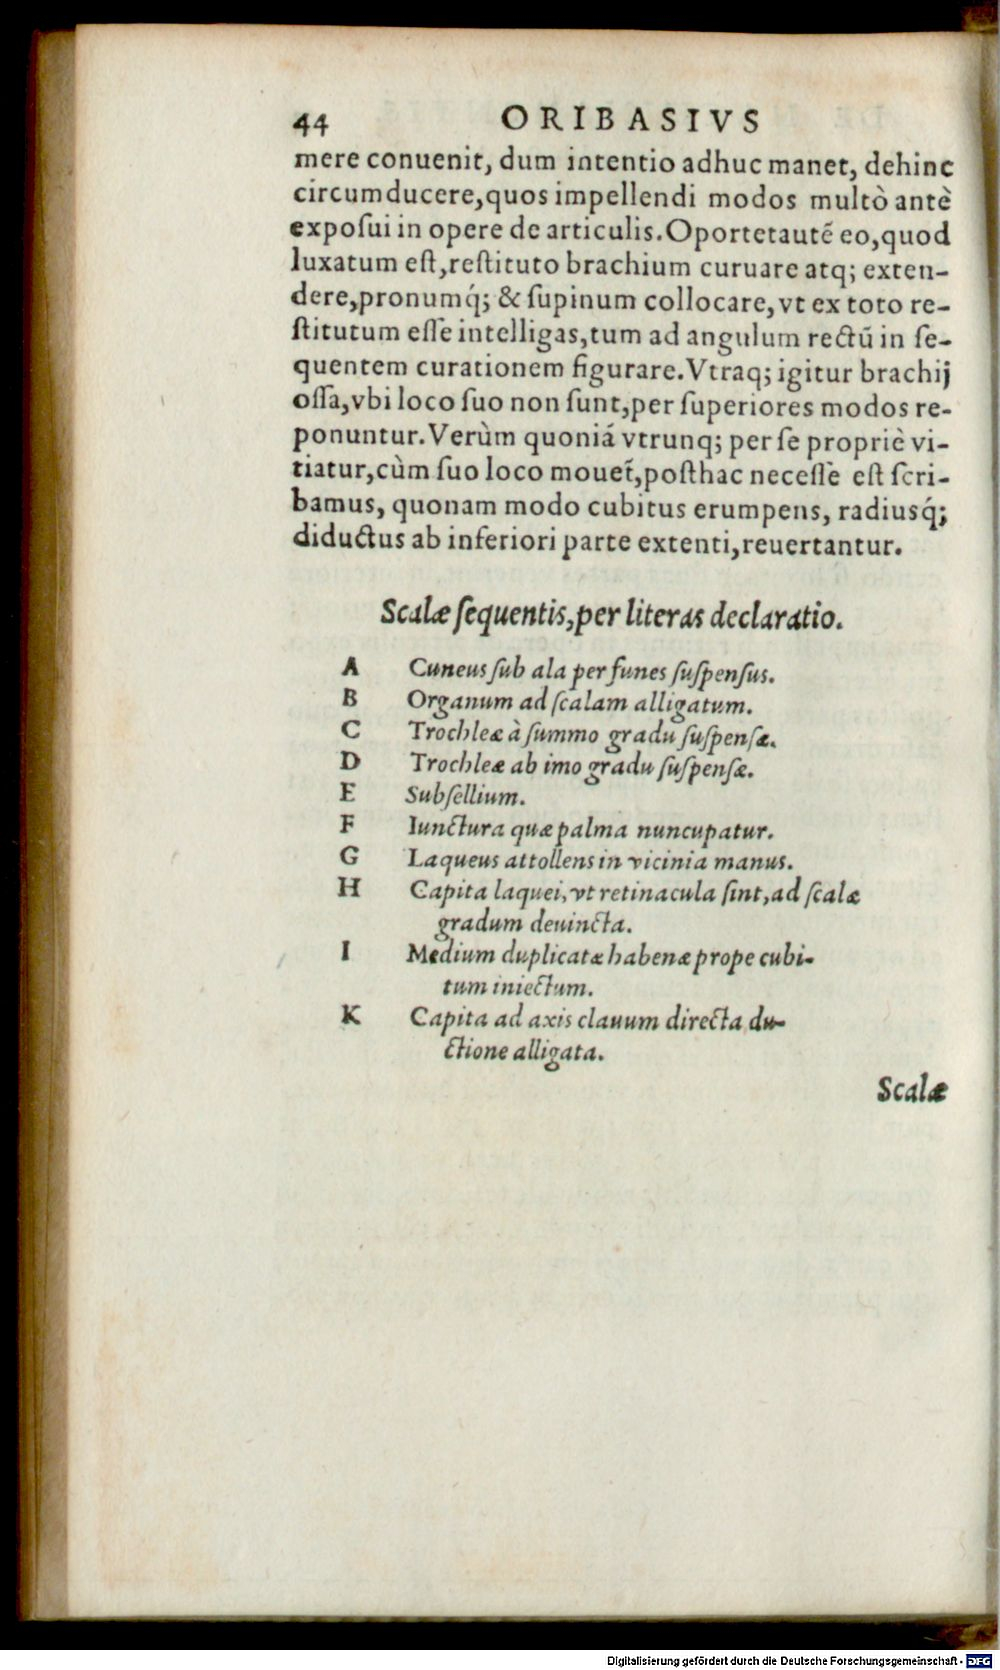 44 ORIBASIVS
mere conuenit, dum intentio adhuc manet, dehinc
circumducere, quos impellendi modos multò antè
exposui in opere de articulis. Oportetautẽ eo, quod
luxatum est, restituto brachium curuare atq; exten-
dere, pronumq́; & supinum collocare, vt ex toto re-
stitutum esse intelligas, tum ad angulum rectũ in se-
quentem curationem figurare. Vtraq; igitur brachij
ossa, vbi loco suo non sunt, per superiores modos re-
ponuntur. Verùm quoniá vtrunq; per se propriè vi-
tiatur, cùm suo loco mouet̃, posthac necesse est scri-
bamus, quonam modo cubitus erumpens, radiusq́;
diductus ab inferiori parte extenti, reuertantur.
Scalæ sequentis, per literas declaratio.
A Cuneus sub ala per funes suspensus.
B Organum ad scalam alligatum.
C Trochleæ à summo gradu suspensæ.
D Trochleæ ab imo gradu suspensæ.
E Subsellium.
F Iunctura quæ palma nuncupatur.
G Laqueus attollens in vicinia manus.
H Capita laquei, vt retinacula sint, ad scalæ
gradum deuincta.
I Medium duplicatæ habenæ prope cubi-
tum iniectum.
K Capita ad axis clauum directa du-
ctione alligata.
Scalæ
Digitalisierung gefördert durch die Deutsche Forschungsgemeinschaft - DFG